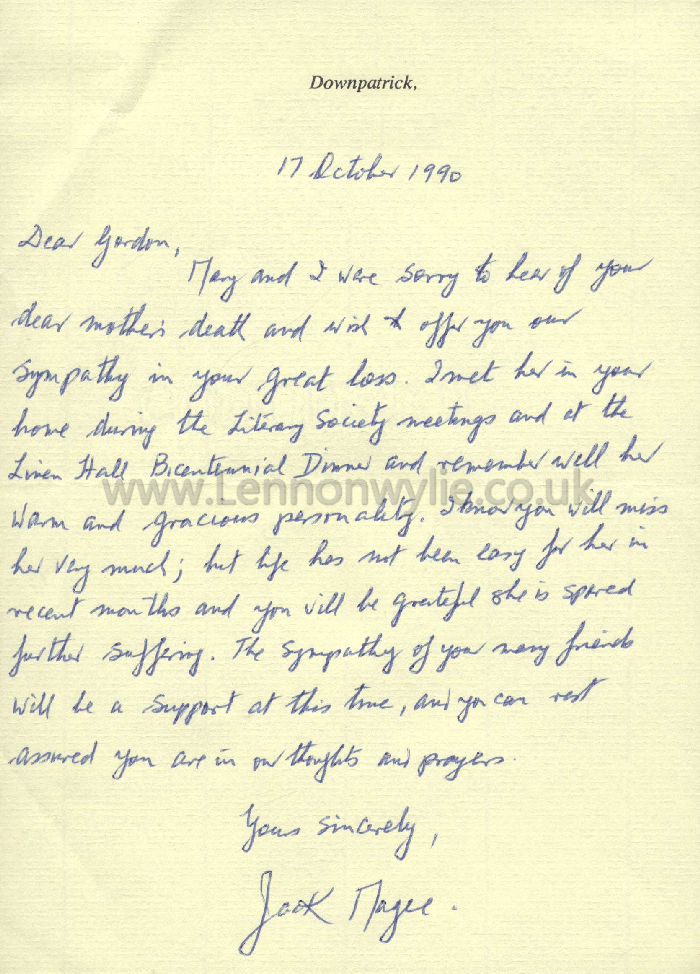 Downpatrick,
17 October 1990
Dear Gordon,
Mary and I were sorry to hear of your
dear mother's death and wish to offer you our
sympathy in your great loss. I met her in your
home during the Literary Society meetings and at the
Linen Hall Bicentennial Dinner and remember well her
www.Lennonwylie.co.uk
warm and gracious personality. I know you will miss
her very much; but life has not been easy for her in
recent months and you will be grateful she is spared
further suffering. The sympathy of your many friends
will be a support at this time, and you can rest
assured you are in our thoughts and prayers.
Yours sincerely,
Jack Magee.